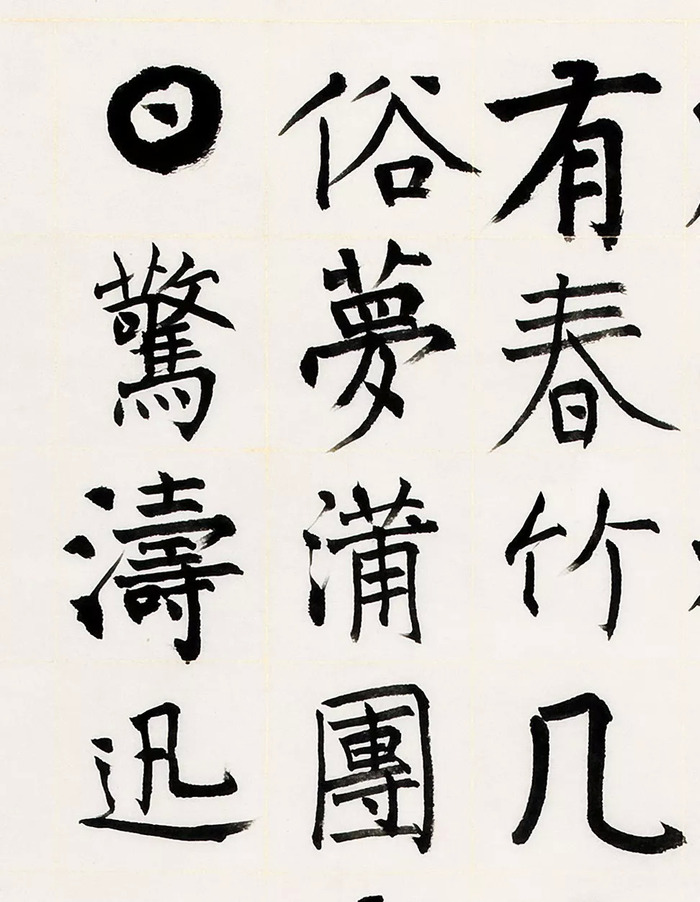 有春竹几
俗夢蒲團
⊙驚濤迅